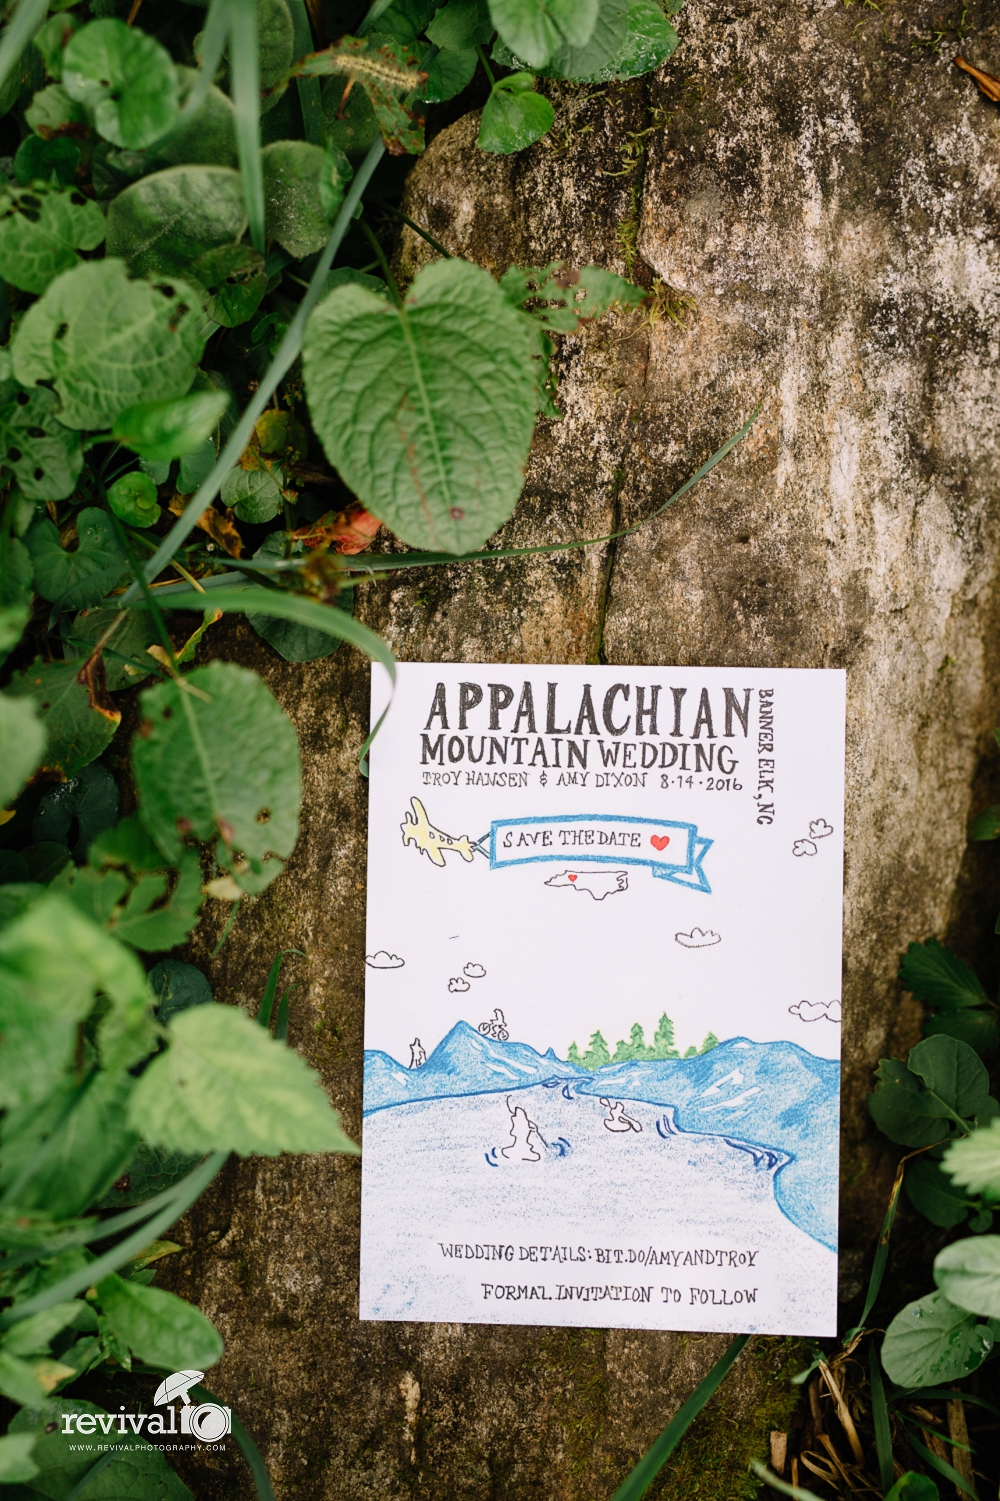 APPALACHIAN
MOUNTAIN WEDDING
TROY HANSEN & AMY DIXON 8·14·2016
BANNER ELK, NC
SAVE THE DATE
WEDDING DETAILS: BIT.DO/AMYANDTROY
FORMAL INVITATION TO FOLLOW
revival
WWW.REVIVALPHOTOGRAPHY.COM